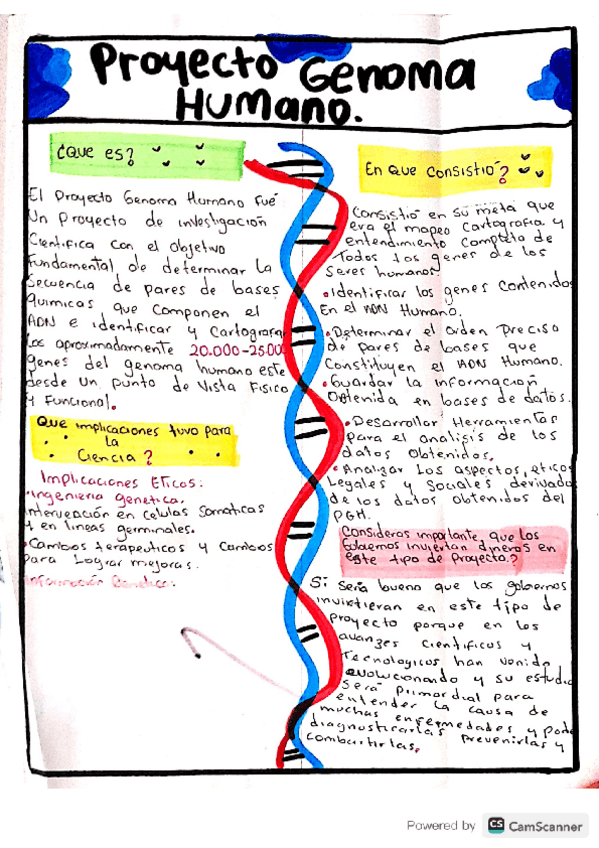 Proyecto Genoma
Humano.
¿Que es?
El Proyecto Genoma Humano fué
Un Proyecto de investigación
Cientifica con el objetivo
Fundamental de determinar la
Secuencia de pares de bases
Quimicas que componen el
ADN E identificar y Cartografar
Los aproximadamente 20.000-25.000
genes del genoma humano este
desde un punto de vista Fisico
y Funcional.
Que implicaciones tuvo para
la
Ciencia?
Implicaciones Eticos:
•Ingenieria genetica.
Intervención en Celulas Somáticas
y en lineas germinales.
•Cambios terapeuticos y cambios
para Lograr mejoras.
Información Genetica:
En que consistió?
Consistió en su meta que
era el mapeo Cartografia y
entendimiento Completa de
Todos Los genes de los
Seres humanos.
•Identificar los genes contenidos
En el ADN Humano.
•Determinar el orden Preciso
de pares de bases que
Constituyen el ADN Humano.
•Guardar la informacion
Obtenida en bases de datos.
•Desarrollar Herramientas
para el analisis de los
datos Obtenidos.
•Analizar Los aspectos, eticos
Legales y Sociales derivados
de los datos obtenidos del
PGH.
Consideras importante, que los
Gobiernos inviertan dineros en
este tipo de Proyecto?
Si Seria bueno que los gobiernos
invirtieran en este tipo de
proyecto porque en los
avanzes cientificos y
Tecnologicos han venido
evolucionando y su estudio
Será primordial para
entender la causa de
muchas enfermedades y poder
diagnosticarlas prevenirlas y
combatirlas.
Powered by CS CamScanner